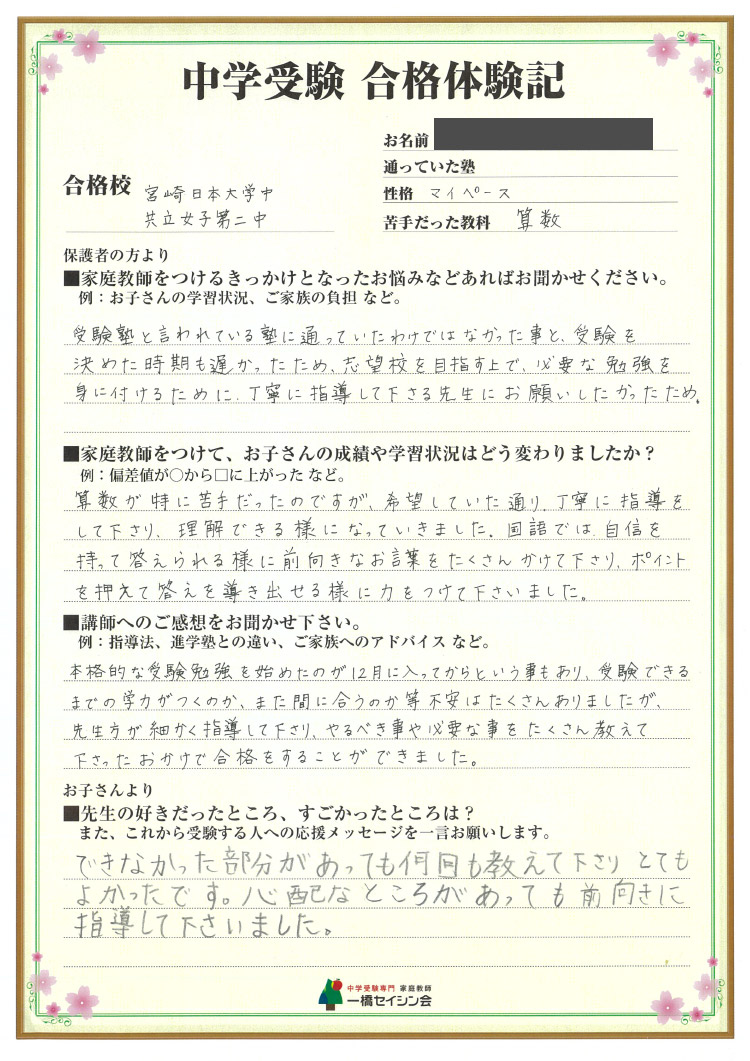 中学受験 合格体験記
お名前
通っていた塾
合格校 宮崎日本大学中
共立女子第二中
性格 マイペース
苦手だった教科 算数
保護者の方より
■家庭教師をつけるきっかけとなったお悩みなどあればお聞かせください。
例：お子さんの学習状況、ご家族の負担 など。
受験塾と言われている塾に通っていたわけではなかった事と、受験を
決めた時期も遅かったため、志望校を目指す上で、必要な勉強を
身に付けるために、丁寧に指導して下さる先生にお願いしたかったため。
■家庭教師をつけて、お子さんの成績や学習状況はどう変わりましたか？
例：偏差値が○から□に上がった など。
算数が特に苦手だったのですが、希望していた通り、丁寧に指導を
して下さり、理解できる様になっていきました。国語では、自信を
持って答えられる様に前向きなお言葉をたくさんかけて下さり、ポイント
を押えて答えを導き出せる様に力をつけて下さいました。
■講師へのご感想をお聞かせ下さい。
例：指導法、進学塾との違い、ご家族へのアドバイス など。
本格的な受験勉強を始めたのが12月に入ってからという事もあり、受験できる
までの学力がつくのか、また間に合うのか等不安はたくさんありましたが、
先生方が細かく指導して下さり、やるべき事や必要な事をたくさん教えて
下さったおかげで合格をすることができました。
お子さんより
■先生の好きだったところ、すごかったところは？
また、これから受験する人への応援メッセージを一言お願いします。
できなかった部分があっても何回も教えて下さり とても
よかったです。心配なところがあっても前向きに
指導して下さいました。
中学受験専門 家庭教師
一橋セイシン会